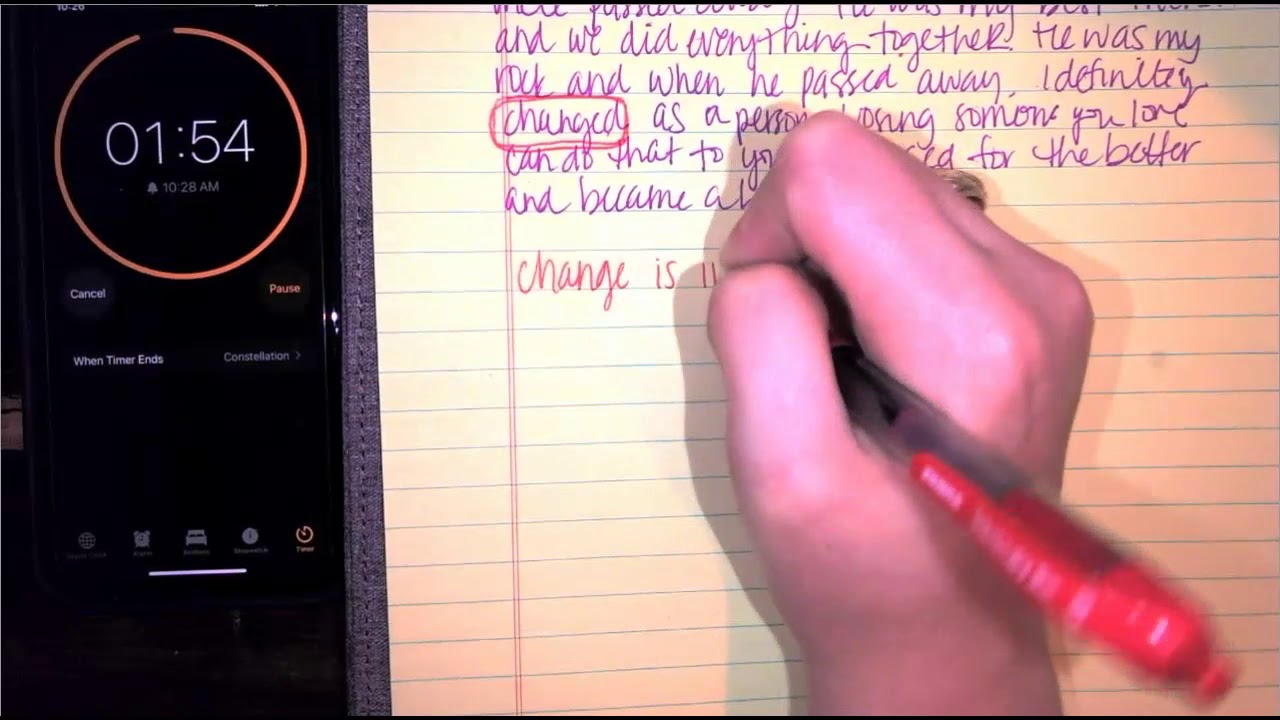 10:26
01:54
10:28 AM
Cancel
Pause
When Timer Ends
Constellation >
Alarm
Stopwatch
Timer
passed away. He was my best
and we did everything together. He was my
rock and when he passed away, I definitely
changed as a person. Losing someone you love
can do that to for the better
and became a
change is